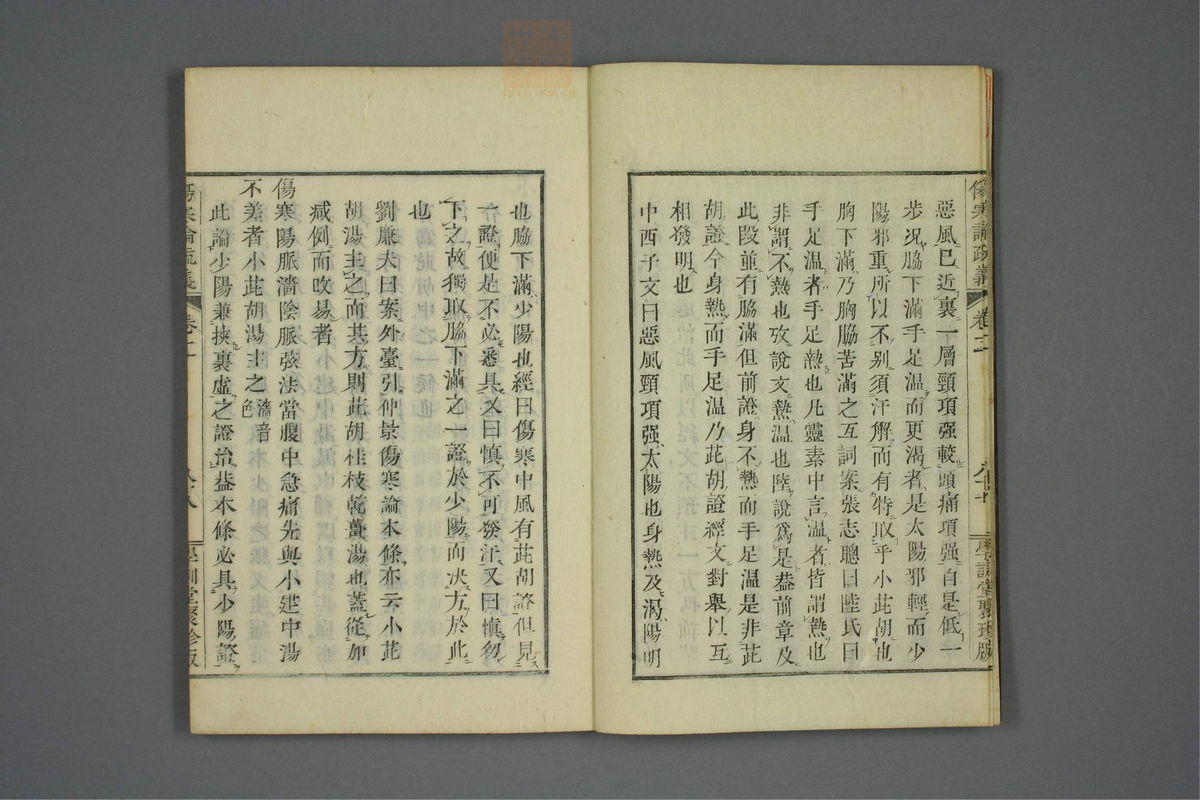 傷寒論疏義
卷二
學訓堂聚珍版
惡風已近裏一層頸項强較頭痛項强自是低一
步况脇下滿手足温而更渴者是太陽邪輕而少
陽邪重所以不别須汗解而有特取乎小茈胡也
胸下滿乃胸脇苦滿之互詞案張志聰曰陸氏曰
手足温者手足熱也凡靈素中言温者皆謂熱也
非謂不熱也攷說文熱温也陸說爲是葢前章及
此段並有脇滿但前證身不熱而手足温是非茈
胡證今身熱而手足温乃茈胡證經文對舉以互
相發明也
中西子文曰惡風頸項强太陽也身熱及渴陽明
也脇下滿少陽也經曰傷寒中風有茈胡證但見
一證便是不必悉具又曰愼不可發汗又曰愼勿
下之故獨取脇下滿之一證於少陽而决方於此
也
劉廉夫曰案外臺引仲景傷寒論本條亦云小茈
胡湯主之而其方則此胡桂枝乾薑湯也蓋從加
減例而改易者
傷寒陽脈濇陰脈弦法當腹中急痛先與小建中湯
不差者小茈胡湯主之濇音色
此論少陽兼挾裏虛之證治葢本條必具少陽證
傷寒論疏義
卷二
學訓堂聚珍版